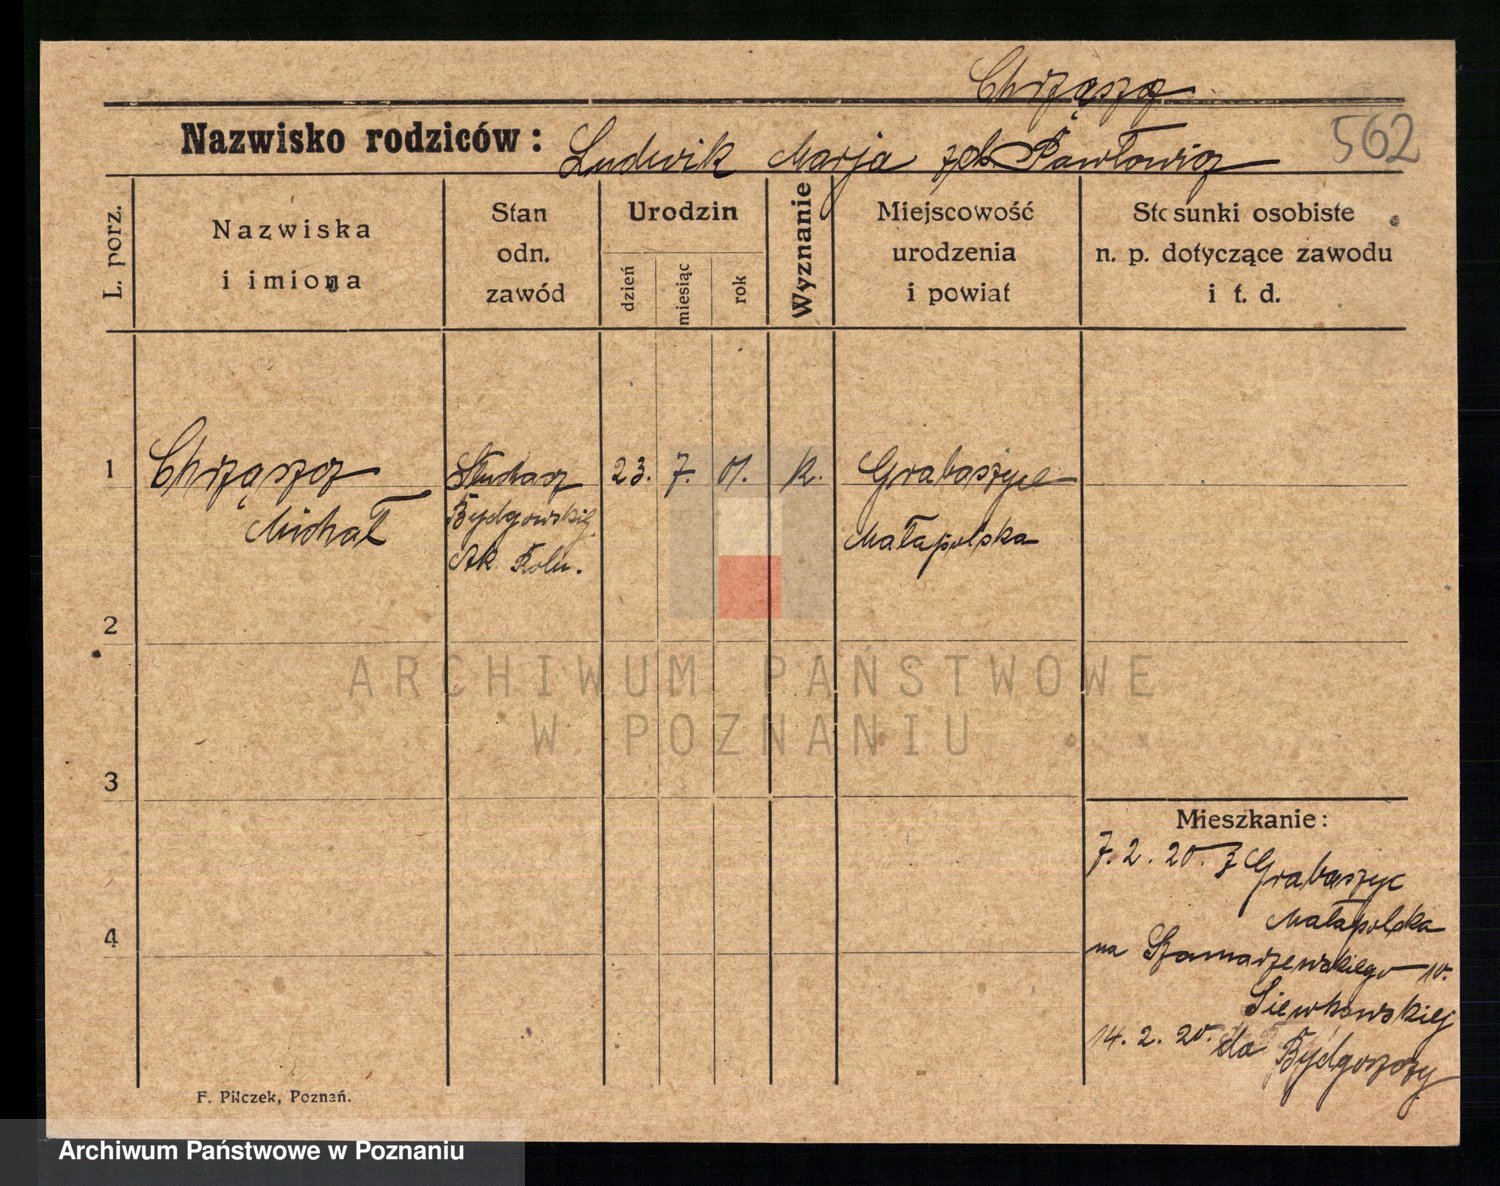 Chrząszcz
562
Nazwisko rodziców: Ludwik Marja zd. Pawłowicz
L. porz.
Nazwiska
i imiona
Stan
odn.
zawód
Urodzin
dzień
miesiąc
rok
Wyznanie
Miejscowość
urodzenia
i powiat
Stosunki osobiste
n. p. dotyczące zawodu
i t. d.
1 Chrząszcz Słuchacz 23. 7. 01. k. Grabaszyce
Michał Bydgowskiej Małapolska
Ak. Roln.
2
ARCHIWUM PAŃSTWOWE
W POZNANIU
3
Mieszkanie:
7. 2. 20. z Grabaszyc
Małapolska
4
na Szamarzewskiego 10.
14. 2. 20. do Bydgoszczy
F. Pilczek, Poznań.
Archiwum Państwowe w Poznaniu